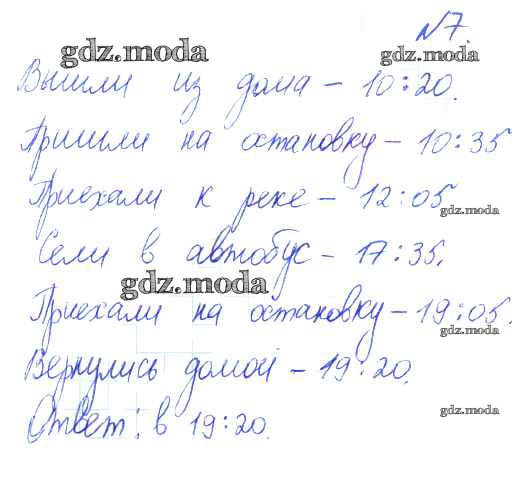 №7.
gdz.moda gdz.moda
Вышли из дома – 10:20.
Пришли на остановку – 10:35
Приехали к реке – 12:05
gdz.moda
Сели в автобус – 17:35.
gdz.moda
Приехали на остановку – 19:05.
gdz.moda
Вернулись домой – 19:20.
Ответ: в 19:20.
gdz.moda